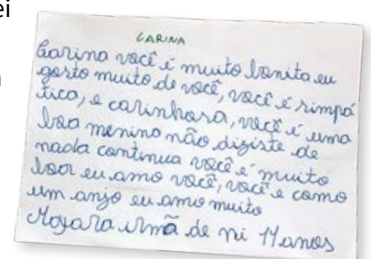 ei
CARINA
Carina você é muito bonita eu
gosto muito de você, você é simpá
tica, e carinhosa, você é uma
boa menina não diziste de
nada continua você é muito
boa eu amo você, você e como
um anjo eu amo muito
irmã de ni 11 anos